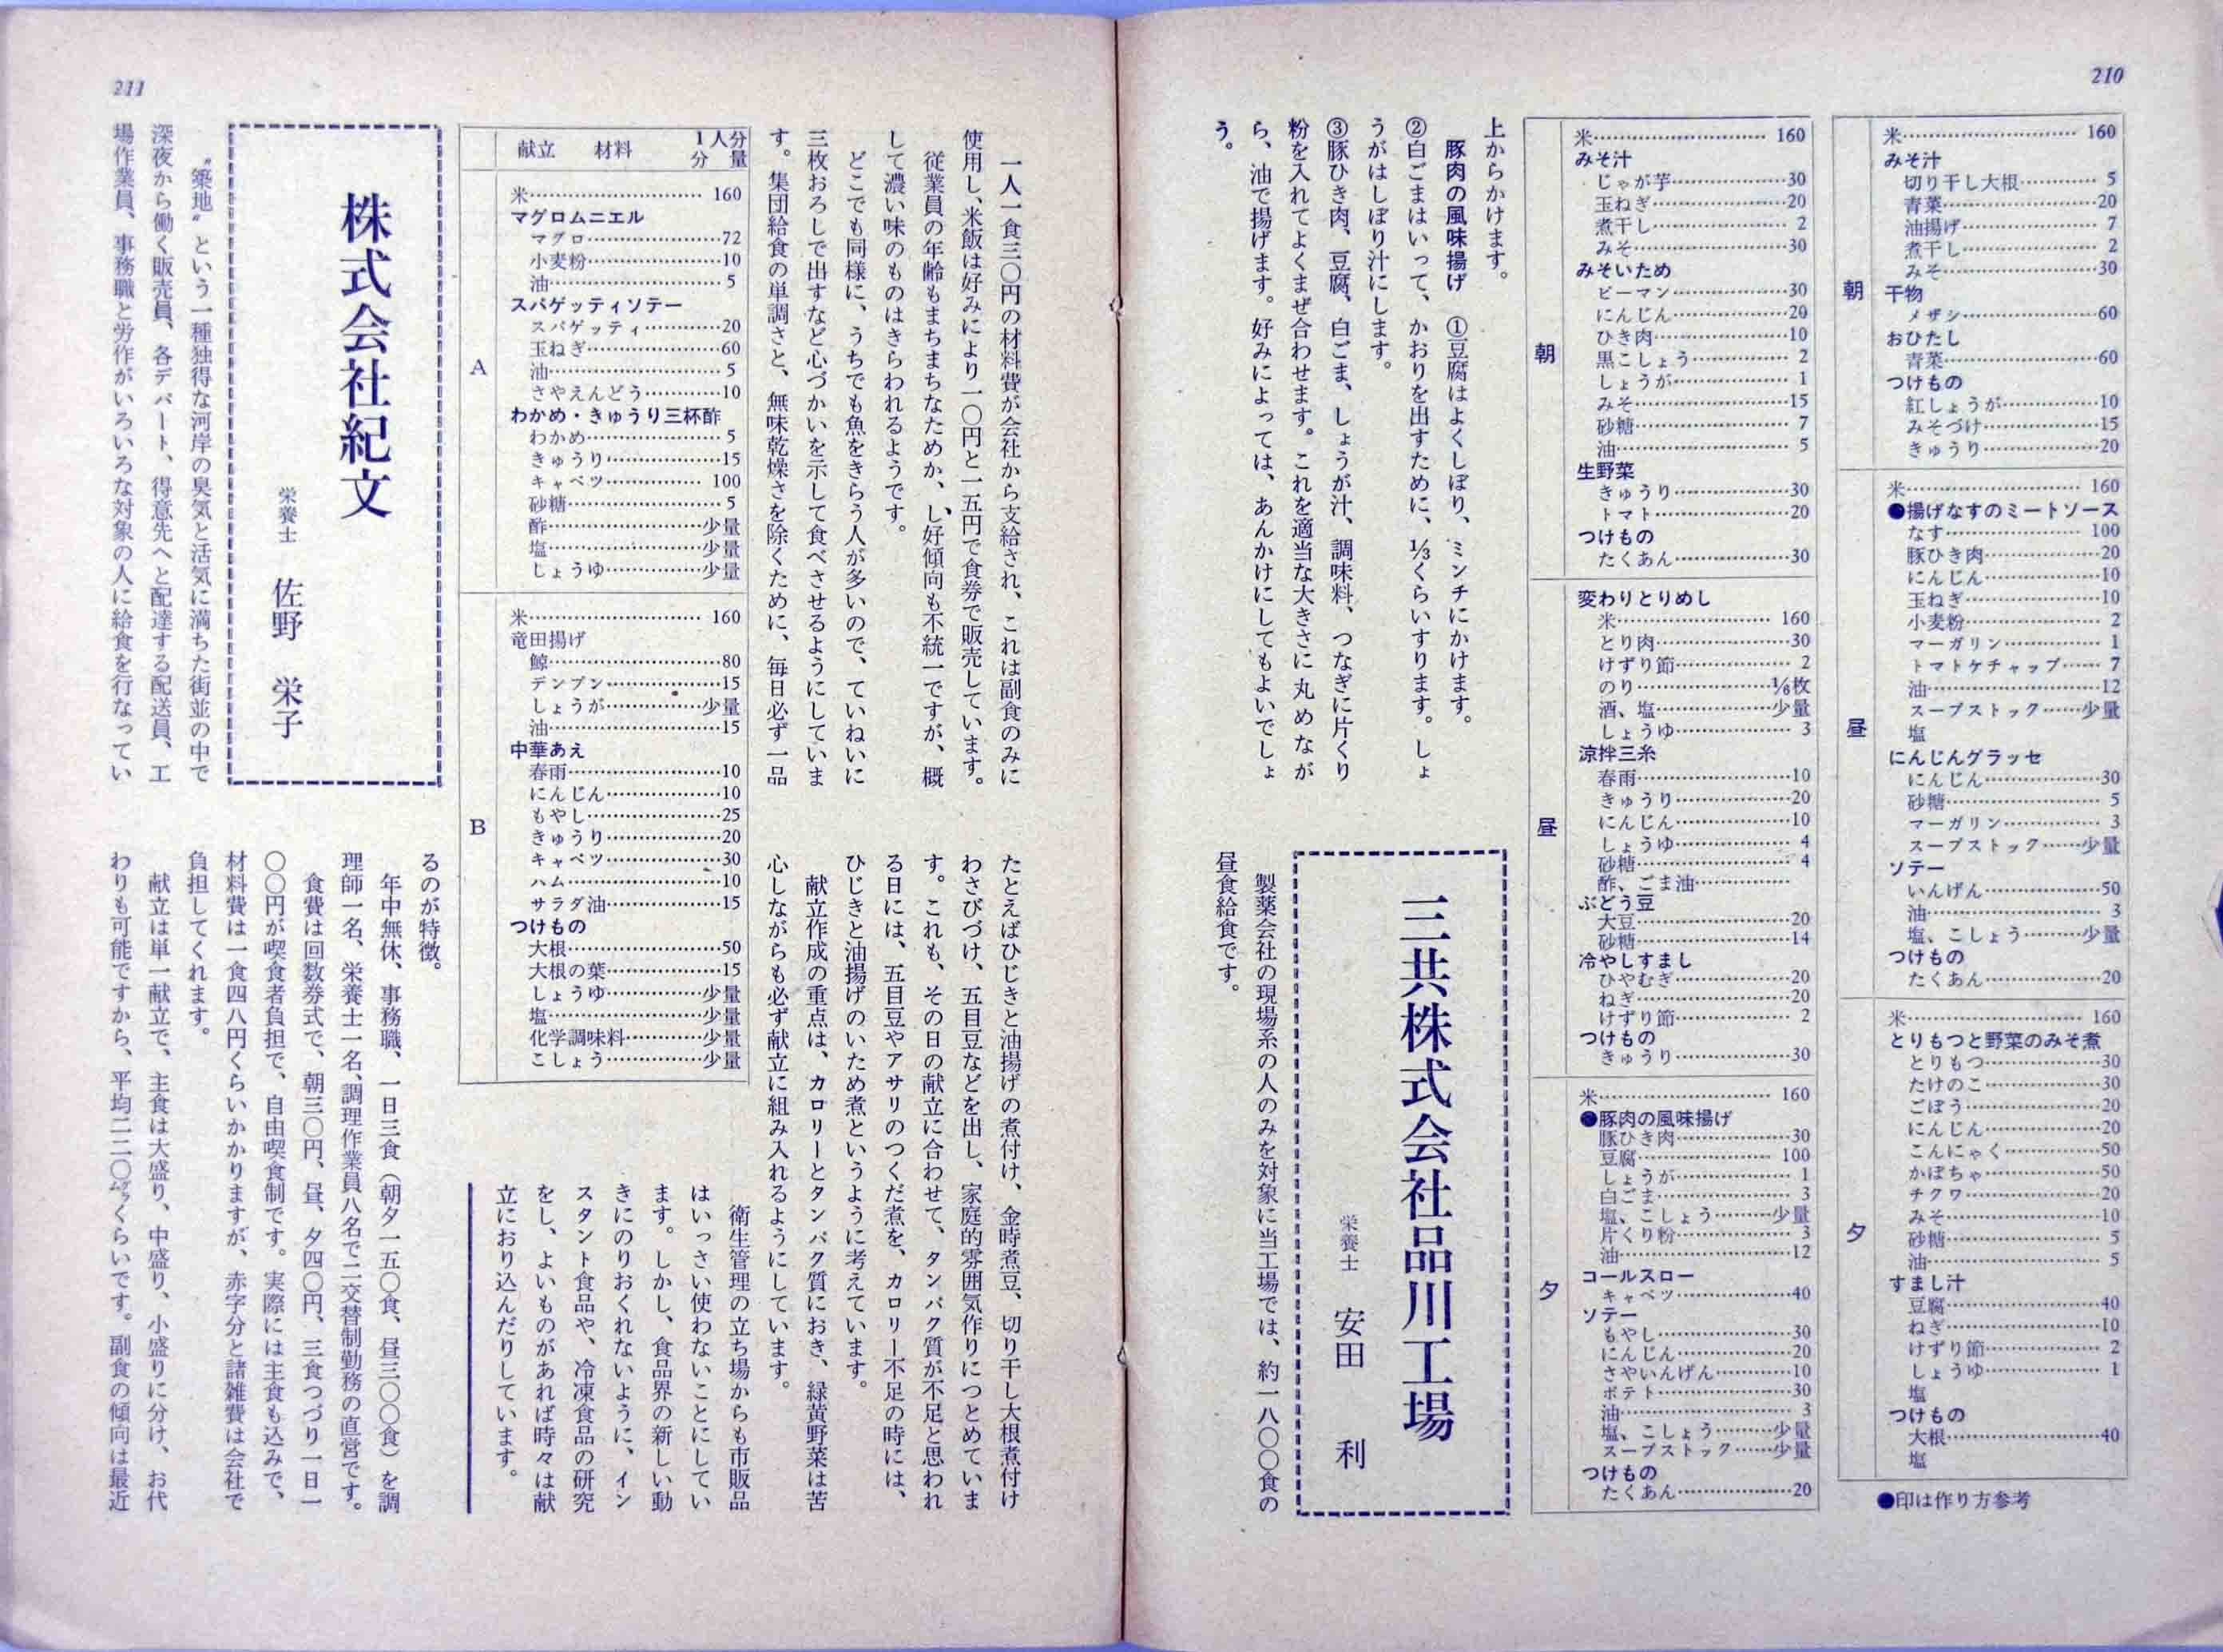 210
朝
米 160
みそ汁
切り干し大根 5
青菜 20
油揚げ 7
煮干し 2
みそ 30
干物
メザシ 60
おひたし
青菜 60
つけもの
紅しょうが 10
みそづけ 15
きゅうり 20
昼
米 160
●揚げなすのミートソース
なす 100
豚ひき肉 20
にんじん 10
玉ねぎ 10
小麦粉 2
マーガリン 1
トマトケチャップ 7
油 12
スープストック 少量
塩
にんじんグラッセ
にんじん 30
砂糖 5
マーガリン 3
スープストック 少量
ソテー
いんげん 50
油 3
塩、こしょう 少量
つけもの
たくあん 20
夕
米 160
とりもつと野菜のみそ煮
とりもつ 30
たけのこ 30
ごぼう 20
にんじん 20
こんにゃく 50
かぼちゃ 50
チクワ 20
みそ 10
砂糖 5
油 5
すまし汁
豆腐 40
ねぎ 10
けずり節 2
しょうゆ 1
塩
つけもの
大根 40
塩
●印は作り方参考
朝
米 160
みそ汁
じゃが芋 30
玉ねぎ 20
煮干し 2
みそ 30
みそいため
ピーマン 30
にんじん 20
ひき肉 10
黒こしょう 2
しょうが 1
みそ 15
砂糖 7
油 5
生野菜
きゅうり 30
トマト 20
つけもの
たくあん 30
昼
変わりとりめし
米 160
とり肉 30
けずり節 2
のり 1/6枚
酒、塩 少量
しょうゆ 3
涼拌三糸
春雨 10
きゅうり 20
にんじん 10
しょうゆ 4
砂糖 4
酢、ごま油
ぶどう豆
大豆 20
砂糖 14
冷やしすまし
ひやむぎ 20
ねぎ 20
けずり節 2
つけもの
きゅうり 30
夕
米 160
●豚肉の風味揚げ
豚ひき肉 30
豆腐 100
しょうが 1
白ごま 3
塩、こしょう 少量
片くり粉 3
油 12
コールスロー
キャベツ 40
ソテー
もやし 30
にんじん 20
さやいんげん 10
ポテト 30
油 3
塩、こしょう 少量
スープストック 少量
つけもの
たくあん 20
上からかけます。
豚肉の風味揚げ ①豆腐はよくしぼり、ミンチにかけます。
②白ごまはいって、かおりを出すために、⅓くらいすります。しょ
うがはしぼり汁にします。
③豚ひき肉、豆腐、白ごま、しょうが汁、調味料、つなぎに片くり
粉を入れてよくまぜ合わせます。これを適当な大きさに丸めなが
ら、油で揚げます。好みによっては、あんかけにしてもよいでしょ
う。
三共株式会社品川工場
栄養士 安田 利
製薬会社の現場系の人のみを対象に当工場では、約一八〇〇食の
昼食給食です。
一人一食三〇円の材料費が会社から支給され、これは副食のみに
使用し、米飯は好みにより一〇円と一五円で食券で販売しています。
従業員の年齢もまちまちなためか、し好傾向も不統一ですが、概
して濃い味のものはきらわれるようです。
どこでも同様に、うちでも魚をきらう人が多いので、ていねいに
三枚おろしで出すなど心づかいを示して食べさせるようにしていま
す。集団給食の単調さと、無味乾燥さを除くために、毎日必ず一品
たとえばひじきと油揚げの煮付け、金時煮豆、切り干し大根煮付け
わさびづけ、五目豆などを出し、家庭的雰囲気作りにつとめていま
す。これも、その日の献立に合わせて、タンパク質が不足と思われ
る日には、五目豆やアサリのつくだ煮を、カロリー不足の時には、
ひじきと油揚げのいため煮というように考えています。
献立作成の重点は、カロリーとタンパク質におき、緑黄野菜は苦
心しながらも必ず献立に組み入れるようにしています。
衛生管理の立ち場からも市販品
はいっさい使わないことにしてい
ます。しかし、食品界の新しい動
きにのりおくれないように、イン
スタント食品や、冷凍食品の研究
をし、よいものがあれば時々は献
立におり込んだりしています。
献立 材料 1人分分量
A
米 160
マグロムニエル
マグロ 72
小麦粉 10
油 5
スパゲッティソテー
スパゲッティ 20
玉ねぎ 60
油 5
さやえんどう 10
わかめ・きゅうり三杯酢
わかめ 5
きゅうり 15
キャベツ 100
砂糖 5
酢 少量
塩 少量
しょうゆ 少量
B
米 160
竜田揚げ
鯨 80
デンプン 15
しょうが 少量
油 15
中華あえ
春雨 10
にんじん 10
もやし 25
きゅうり 20
キャベツ 30
ハム 10
サラダ油 15
つけもの
大根 50
大根の葉 15
しょうゆ 少量
塩 少量
化学調味料 少量
こしょう 少量
株式会社紀文
栄養士 佐野 栄子
〝築地〟という一種独得な河岸の臭気と活気に満ちた街並の中で
深夜から働く販売員、各デパート、得意先へと配達する配送員、工
場作業員、事務職と労作がいろいろな対象の人に給食を行なってい
るのが特徴。
年中無休、事務職、一日三食（朝夕一五〇食、昼三〇〇食）を調
理師一名、栄養士一名、調理作業員八名で二交替制勤務の直営です。
食費は回数券式で、朝三〇円、昼、夕四〇円、三食つづり一日一
〇〇円が喫食者負担で、自由喫食制です。実際には主食も込みで、
材料費は一食四八円くらいかかりますが、赤字分と諸雑費は会社で
負担してくれます。
献立は単一献立で、主食は大盛り、中盛り、小盛りに分け、お代
わりも可能ですから、平均二二〇グラムくらいです。副食の傾向は最近
211